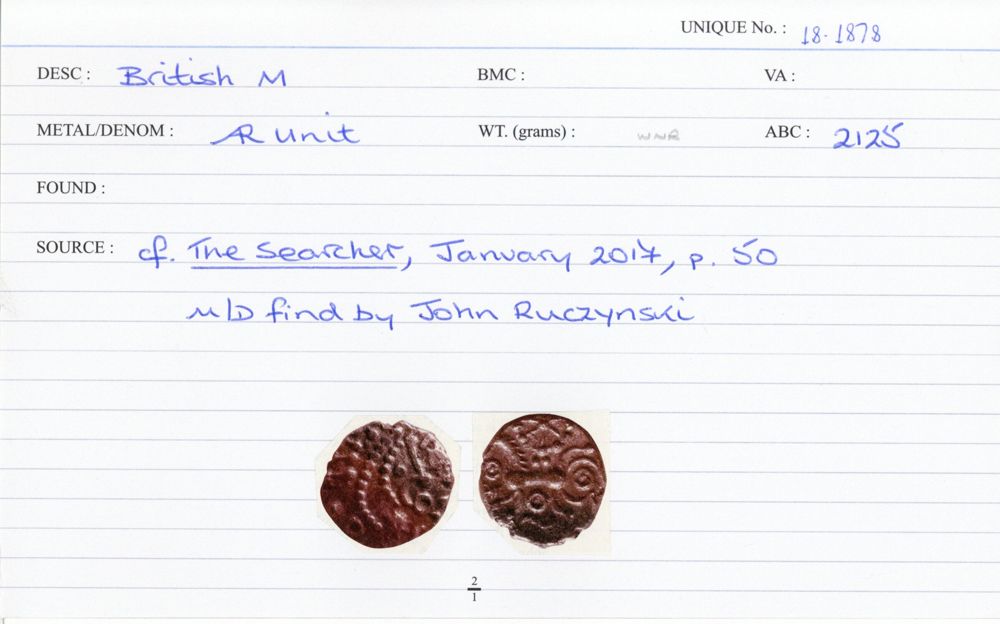 UNIQUE No. : 18.1878
DESC : British M BMC : VA :
METAL/DENOM : AR unit WT. (grams) : WNR ABC : 2125
FOUND :
SOURCE : cf. The Searcher, January 2017, p. 50
M/D find by John Ruczynski
2
1